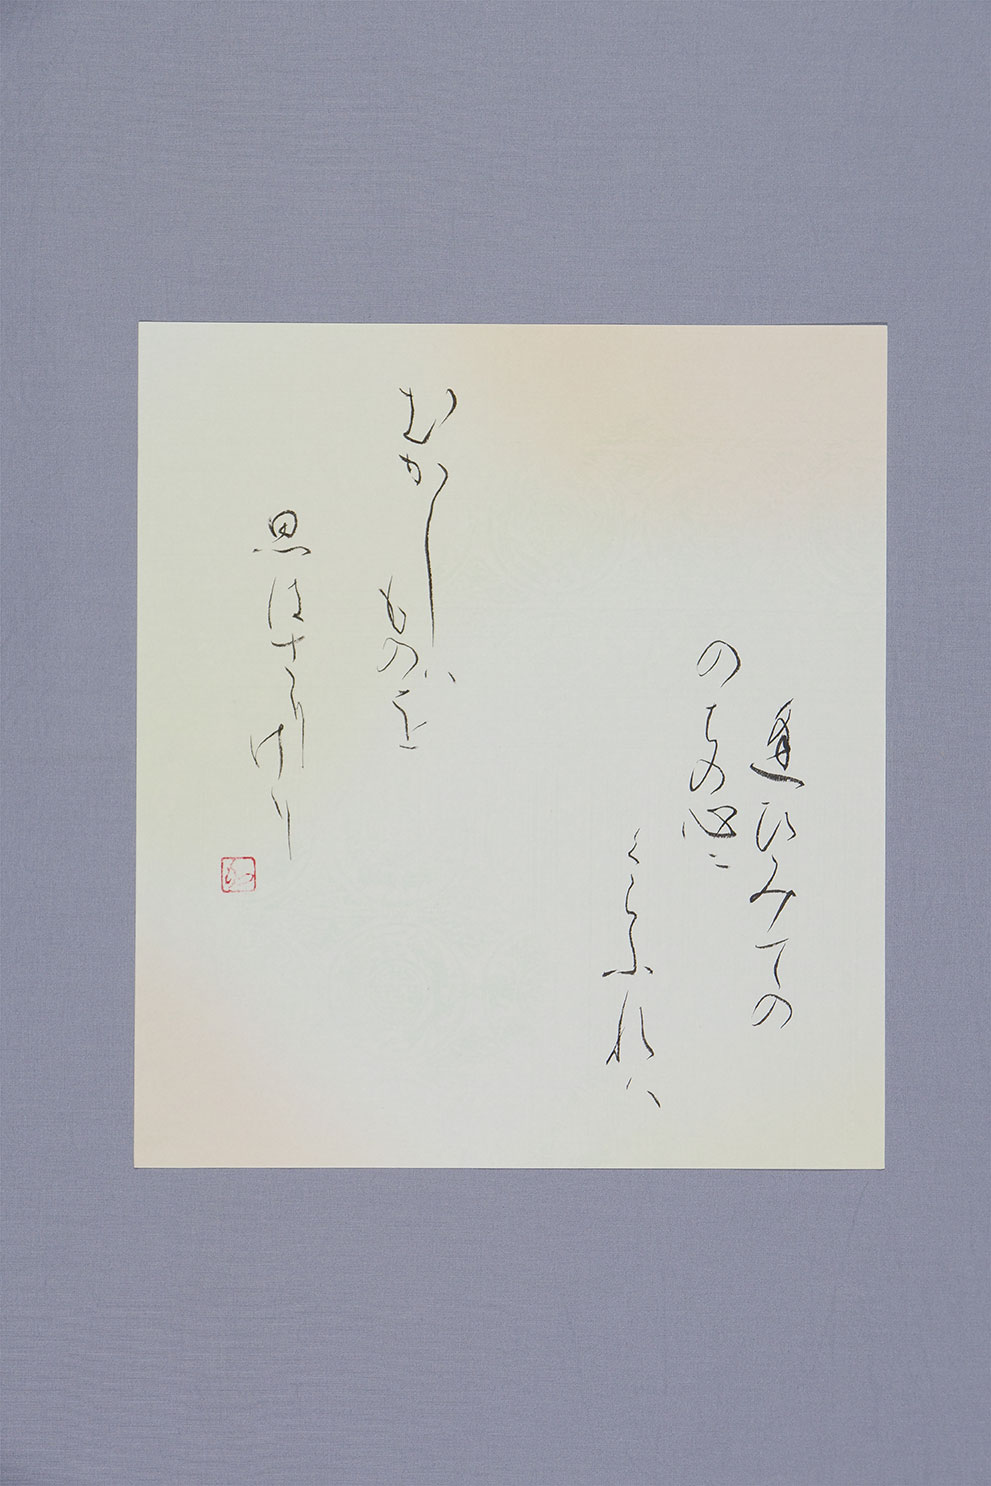 逢ひみての
のちの心に
くらふれハ
むかしハ
ものを
思はさりけり